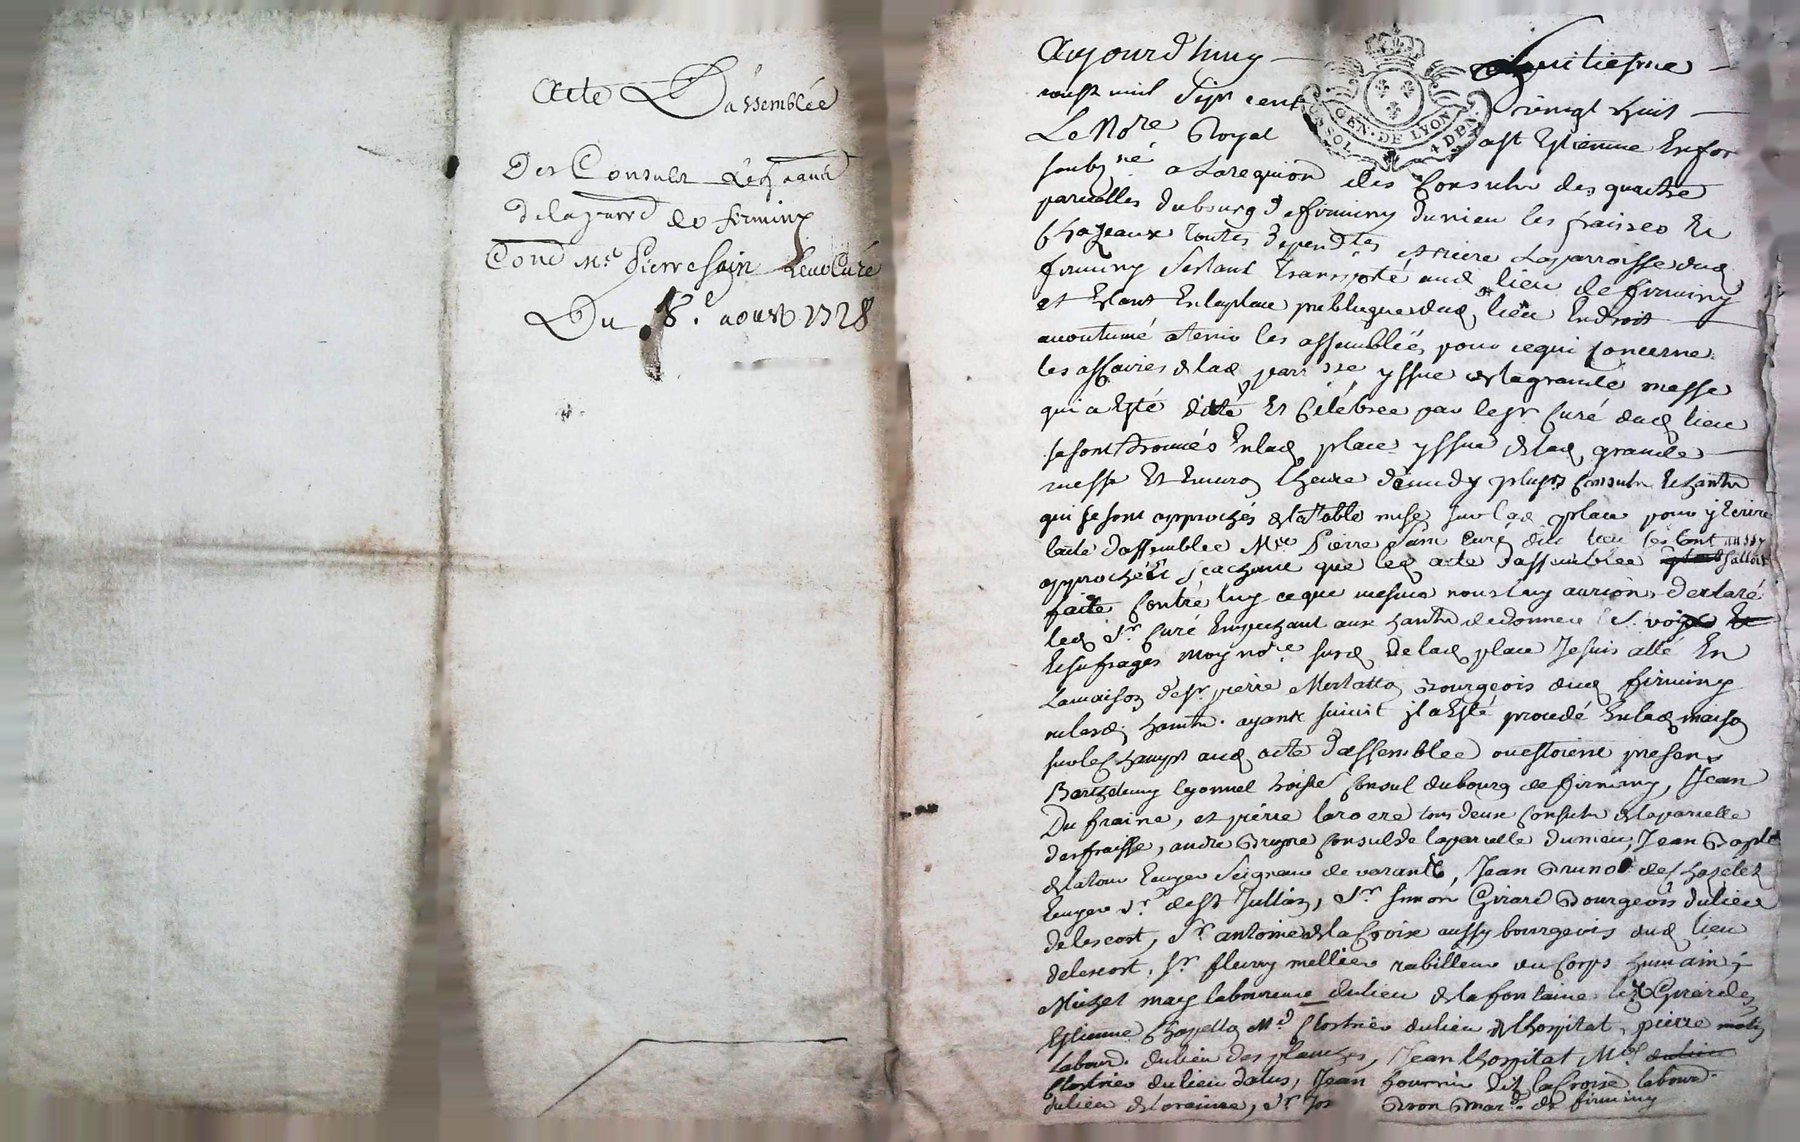 Acte D'assemblée
Des Consuls
de la parr. de firminy
Cont. Mre Pierre Sain leur Curé
Du 8e. aoust 1728
Aujourd'huy huitiesme
aoust mil Sept cent vingt huit
GEN·DE LYON
SOL 4 DEN
Le Nore Royal Estienne
soubzné a la requion des Consuls des quattre
parcelles du bourg de firminy dunieu les fraisses et
Chazeaux toutes dependtes et riere la parroisse dud
firminy S'estant transporté aud lieu de firminy
et Estant En la place publique dud lieu Endroit
acoutumé a tenir les assemblées pour ce qui Concerne
les affaires de lad parrsse yssue de la grande messe
qui a Esté ditte Et Célébrée par le sr Curé dud lieu
se sont trouvés En lad place yssue de lad grande
messe Et Environ l'heure de midy plusrs Consuls Et hantn
qui se sont approchés de la table mise sur lad place pour y Ecrire
l'acte d'assemblée Mre Pierre Sain Curé dud lieu s'est aussy
approché Et sçachant que led acte d'assemblée falloit
faite Contre luy ce que mesme nous luy aurions declaré
led Sr Curé Empechant aux hantn de donner
Et sufrages moy nore susd de lad place Je suis allé En
la maison de sr pierre Merlatton Bourgeois dud firminy
ou lesd hantn. ayant suivit il a Esté procedé En lad maison
sur le champ aud acte d'assemblée ou estoient presens
Barthelemy lyonnet hoiste Consul du bourg de firminy, Jean
Du fraine, et pierre larocre tous deux Consuls de la parcelle
des fraisse, andre Bruyre Consul de la parcelle dunieu, Jean Baptte
de la tour Ecuyer Seigneur de varant, Jean Bruno de Chazelet
Ecuyer sr de St Jullien, Sr Simon Girard Bourgeois du lieu
de lescost, Sr antoine de la Croix aussy bourgeois dud lieu
de lescost, Sr fleury mellier rabilleur du Corps humain
Michel may laboureur du lieu de la fontaine
Estienne Chapellon Md Clostrier du lieu de l'hospital, pierre
labour. du lieu des planches, Jean l'hospital, Md
Clostrier du lieu dalus, Jean fournier dit la Croix labour.
du lieu de loraine, Sr Bron Mard. de firminy